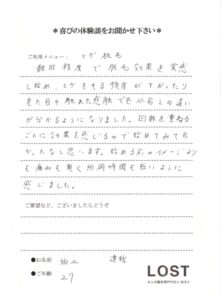 ＊喜びの体験談をお聞かせ下さい＊
ご利用メニュー： ヒゲ脱毛
数回程度で脱毛効果を実感
し始め、ヒゲをそる頻度が下がったり
見た目や触れた感触でも以前との違い
が分かるようになりました。回数を重ねる
ごとに効果を感じるので始めてみて良
かったなと思います。始める前のイメージより
も痛みも無く所用時間も短いように
感じました。
ご要望など、ございましたらどうぞ
●お名前
●ご年齢 27
LOST
メンズ脱毛専門サロン